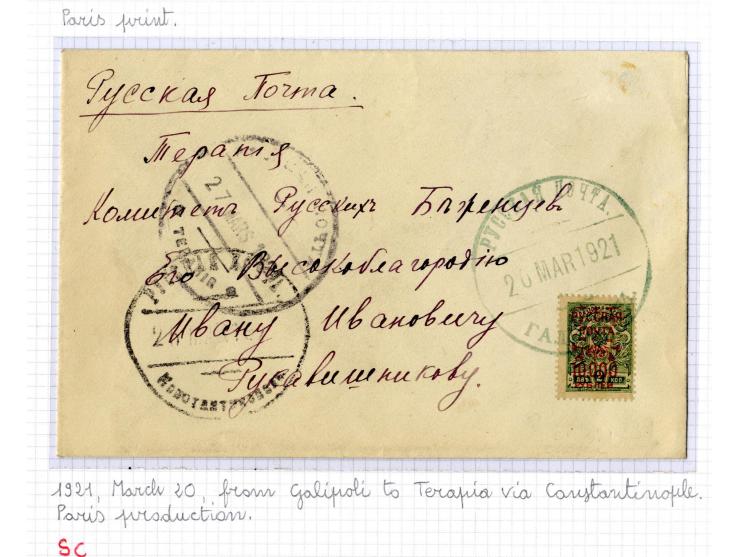 Paris print.
Русская Почта.
Терапiя
Комитетъ Русскихъ Бѣженцевъ
Его Высокоблагородiю
Ивану Ивановичу
Рукавишникову.
РУССКАЯ ПОЧТА.
20 MAR 1921
1921, March 20, from Galipoli to Terapia via Constantinople.
Paris production.
SC